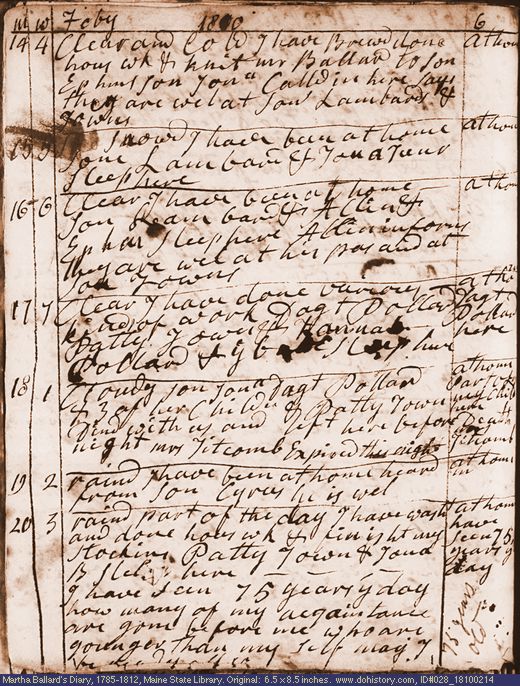 m w Feby 1810 6
14 4 Clear and Cold I have Brewd done at hom
hous wk & knit mr Ballard to son
Ephms son Jona Calld in here says
they are wel at Sons Lambard &
Towns
15 5 Snowd I have been at home at hom
Sons Lambard & Jona
Sleep here
16 6 Clear I have been at home at hom
Son Lambard & Allin &
Ephm Sleep here Allin informs
they are wel at his pas and at
Son Towns
17 7 Clear I have done various at
kind of work Dagt Pollard Dagt
Patty Town & Hannah Pollard
Pollard & Sleep here here
18 1 Cloudy Son Jona Dagt Pollard at hom
& 3 of her Child & Patty Town
Dind with us and left here before
night mrs Titcomb Expired this night Titcomb
19 2 raind I have been at home heard at home
from Son Cyrus he is wel
20 3 raind part of the day I have washt at hom
and done hous wk & finisht my have
Stockins Patty Town & Jona seen 75
B Sleep here years y
I have seen 75 years y day day
how many of my acquaintance
are gone before me who are 75 years
younger than my self may I old
Martha Ballard's Diary, 1785-1812, Maine State Library. Original: 6.5 x 8.5 inches. www.dohistory.com, ID#028_18100214